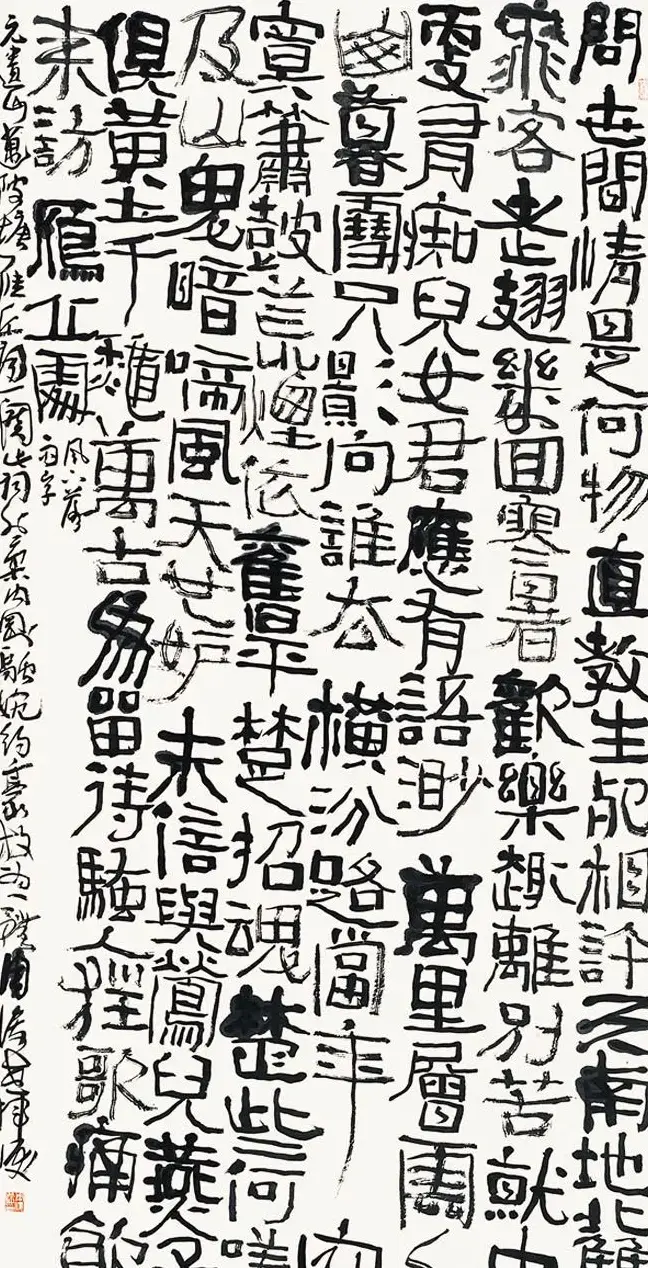 問世間情是何物直教生死相許天南地北雙
飛客老翅幾回寒暑歡樂趣離別苦就中
更有痴兒女君應有語渺萬里層雲
山暮雪只景向誰去橫汾路當年寂
寞簫鼓荒煙依舊平楚招魂楚些何嗟
及山鬼暗啼風天也妒未信與鶯兒燕子
俱黃土千穐萬古為留待騷人狂歌痛飲
來訪雁丘處
風下落
雨字
元遺山邁陂塘雁丘詞一闋此詞融婉約豪放為一體